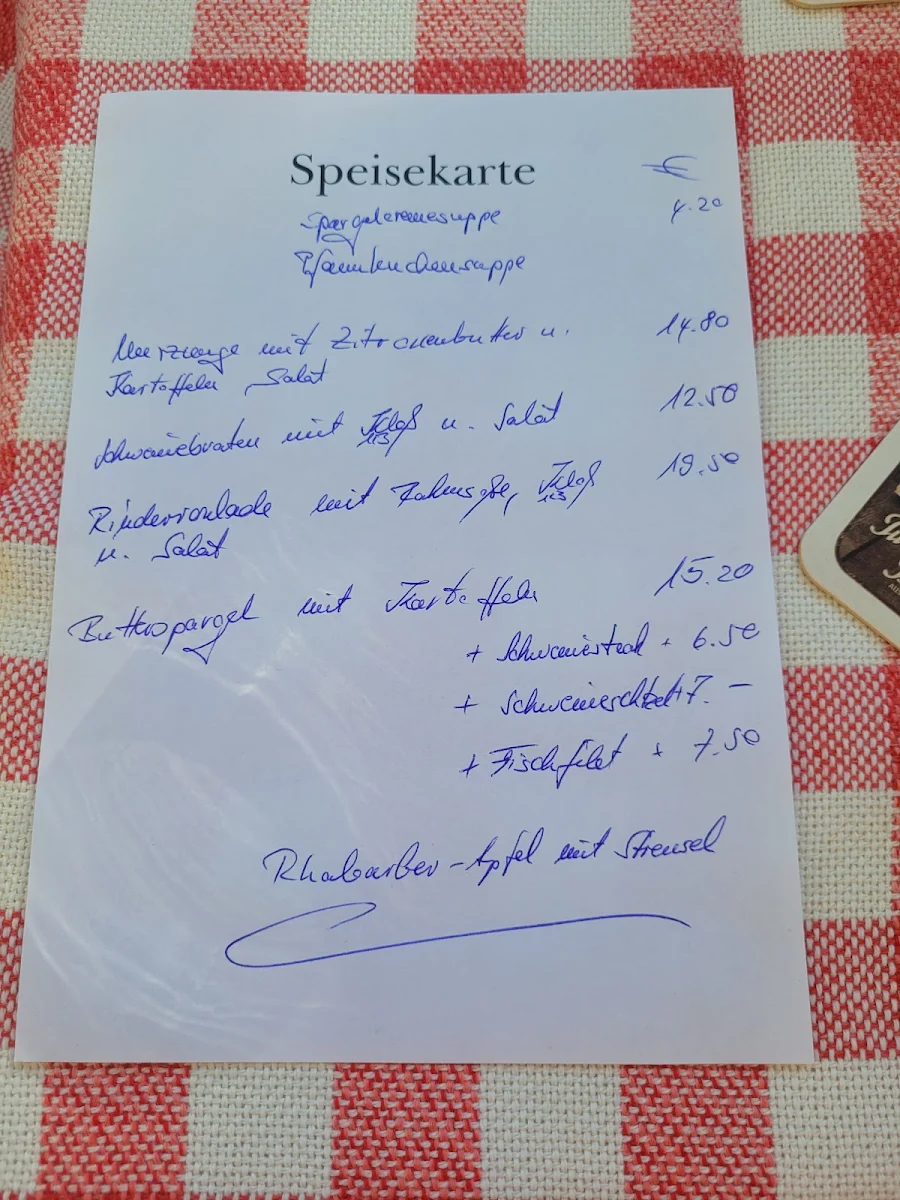 Speisekarte €
Spargelcremesuppe 4.20
Pfannkuchensuppe
Meerzunge mit Zitronenbutter u. 14.80
Kartoffeln, Salat
Schweinebraten mit Kloß u. Salat 12.50
1,3
Rinderroulade mit Rahmsoße, Kloß 19.50
1,3
u. Salat
Butterspargel mit Kartoffeln 15.20
+ Schweinesteak + 6.50
+ Schweineschnitzel + 7. –
+ Fischfilet + 7.50
Rhabarber-Apfel mit Streusel